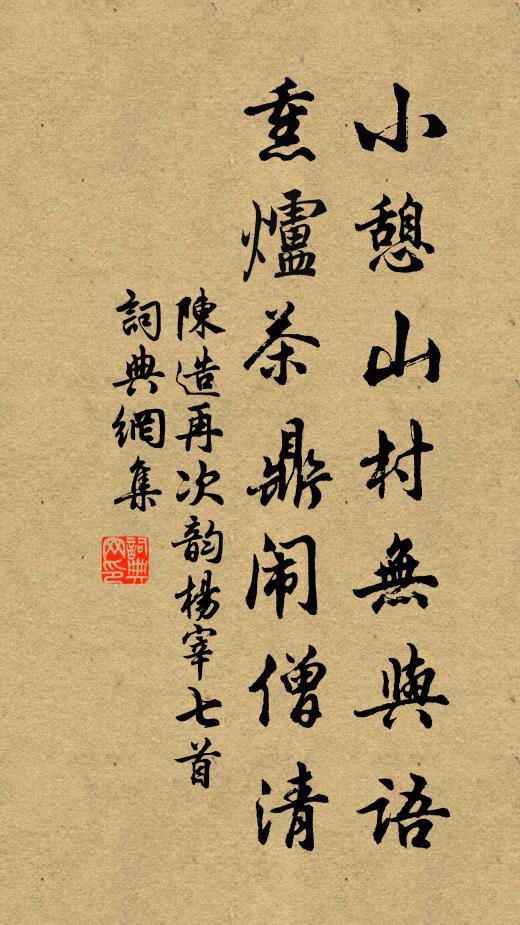 小憩山村無與語
熏爐茶鼎闹僧清
陳造再次韵楊宰七首
詞典網集
詞典网印